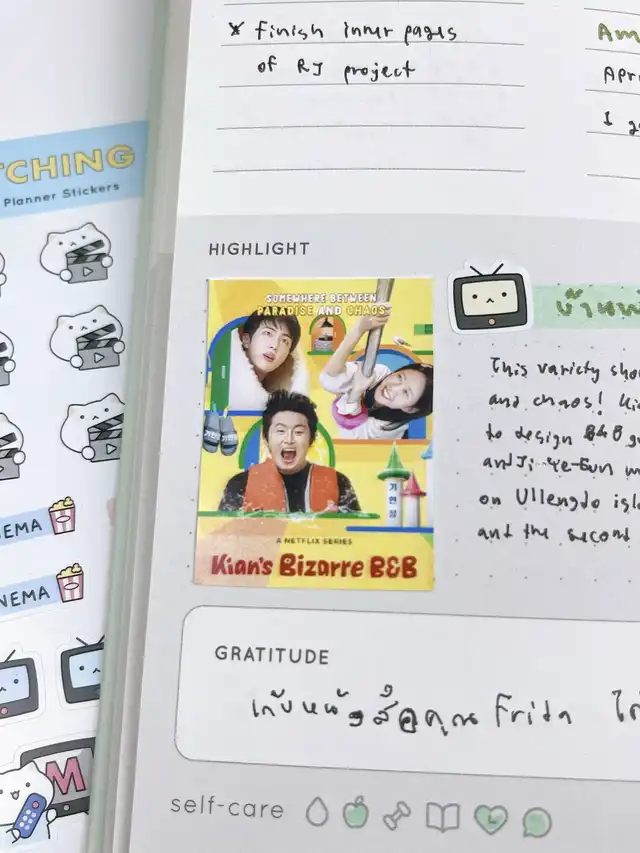 * Finish inner pages
of RJ project
Am
Apri
I g
TCHING
Planner Stickers
HIGHLIGHT
SOMEWHERE BETWEEN
PARADISE AND CHAOS
기안장
A NETFLIX SERIES
Kian's Bizarre B&B
This variety sho
and chaos! Ki
to design B&B g
and Ji Ye-Eun w
on Ullengdo isl
and the second
NEMA
NEMA
M
GRATITUDE
เก็บหนังสือคุณ Frida ไ
self-care